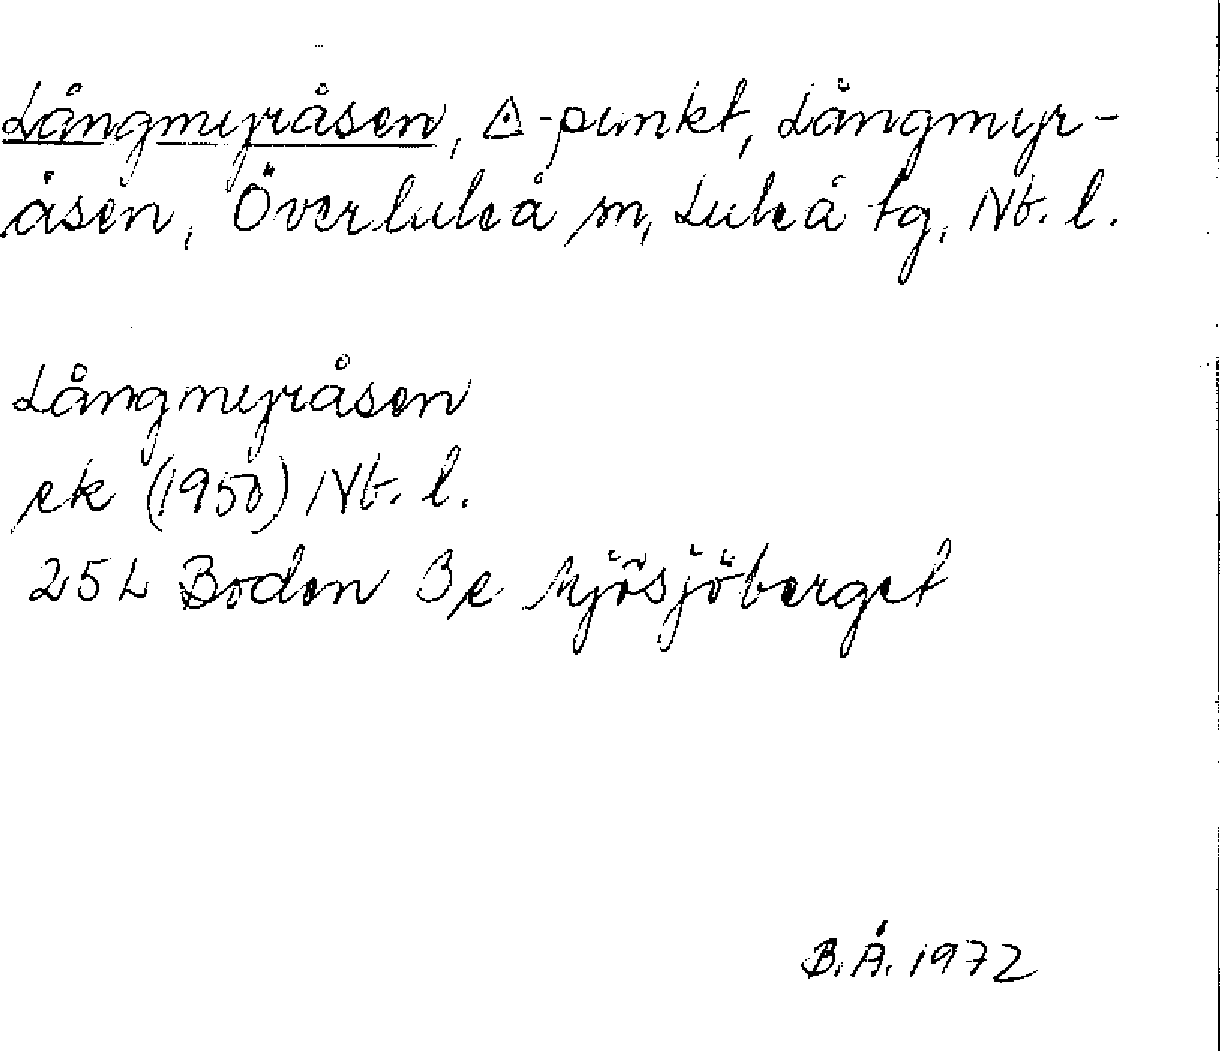 Långmyråsen, △-punkt, Långmyr-
åsen, Överluleå sn, Luleå tg, Nb. l.
Långmyråsen
rk (1950) Nb. l.
25 L Boden 3 e Mjösjöberget
B.Å. 1972